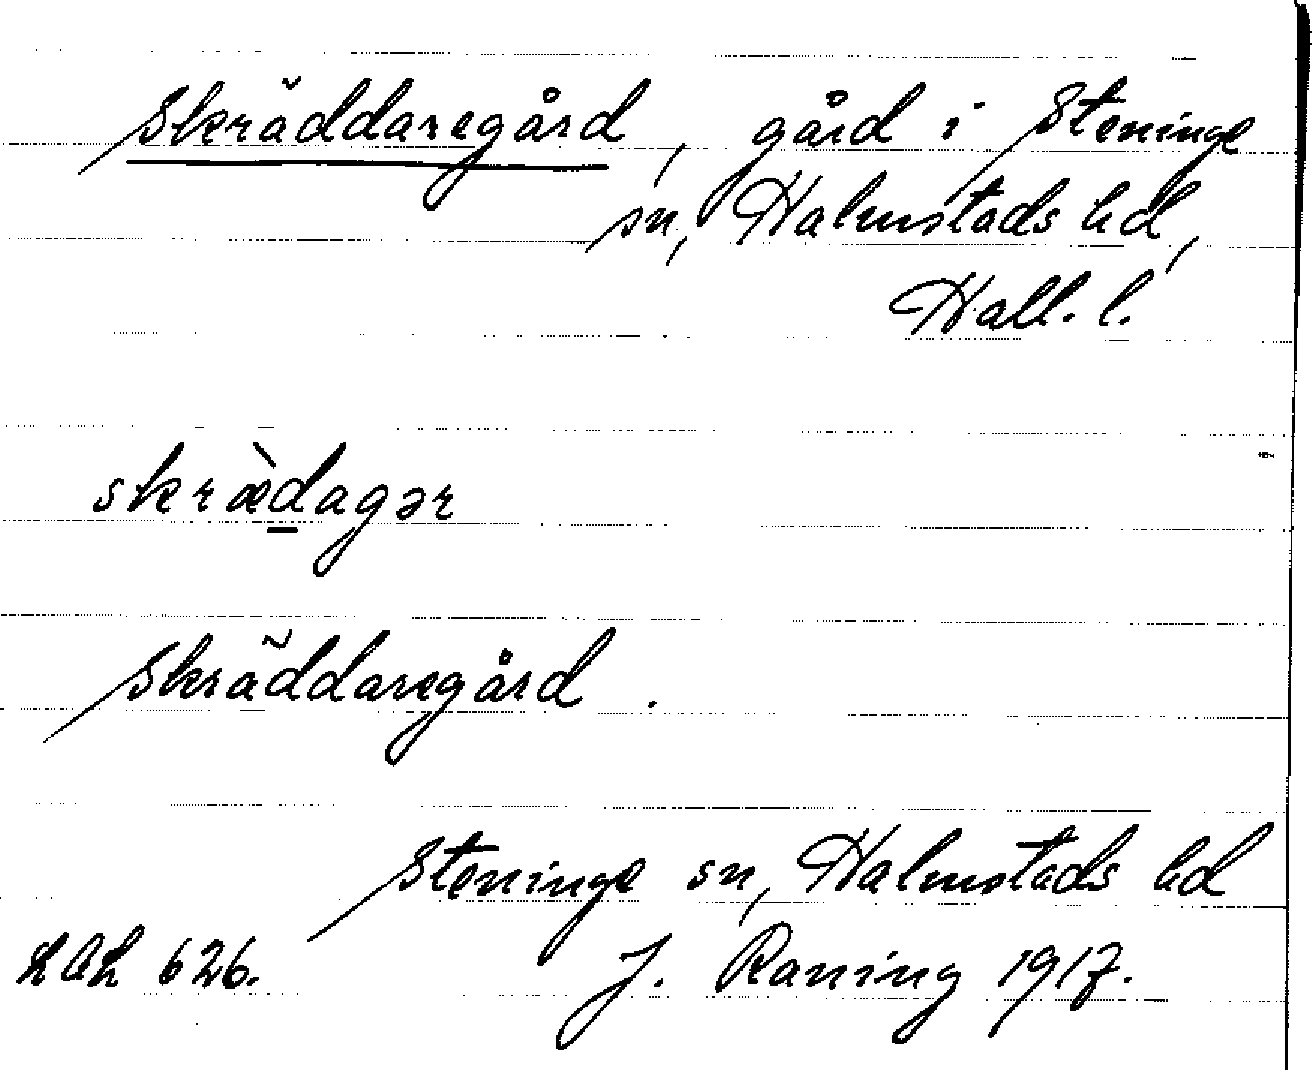 Skräddaregård, gård i Steninge
sn, Halmstads hd,
Hall. l.
skræ̀d̲agər
Skräddaregård.
Steninge sn, Halmstads hd
LAL 626. J. Raning 1917.